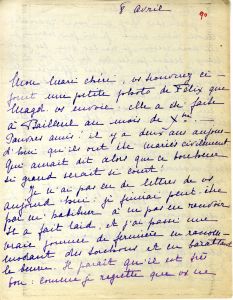 8 avril
90
Mon mari chéri, vs trouverez ci-
joint une petite photo de Félix que
Magd. vs envoie : elle a été faite
à Bailleul au mois de Xbre.
Pauvres amis ! il y a deux ans aujour-
d'hui qu'ils ont été mariés civilement
Qui aurait dit alors que ce bonheur
si grand serait si court !
Je n'ai pas eu de lettres de vs
aujourd'hui : je finirai peut-être
par m'habituer à n'en pas recevoir
Il a fait laid, et j'ai passé une
vraie journée de fermière en raccom-
modant des torchons et en barattant
le beurre. Il paraît qu'il est très
bon : comme je regrette que vs ne